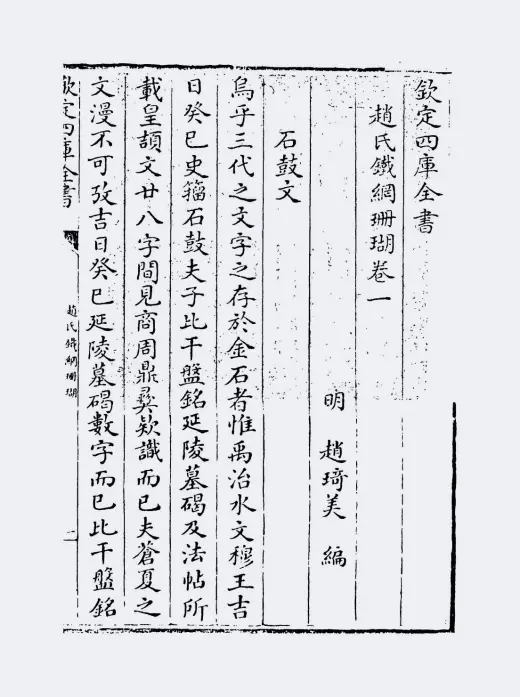 欽定四庫全書
趙氏鐵網珊瑚卷一
明 趙琦美 編
石鼓文
烏乎三代之文字之存於金石者惟禹治水文穆王吉
日癸巳史籀石鼓夫子比干盤銘延陵墓碣及法帖所
載皇頡文廿八字間見商周鼎彛欵識而已夫蒼夏之
文漫不可攷吉日癸巳延陵墓碣數字而已比干盤銘
欽定四庫全書
趙氏鐵網珊瑚